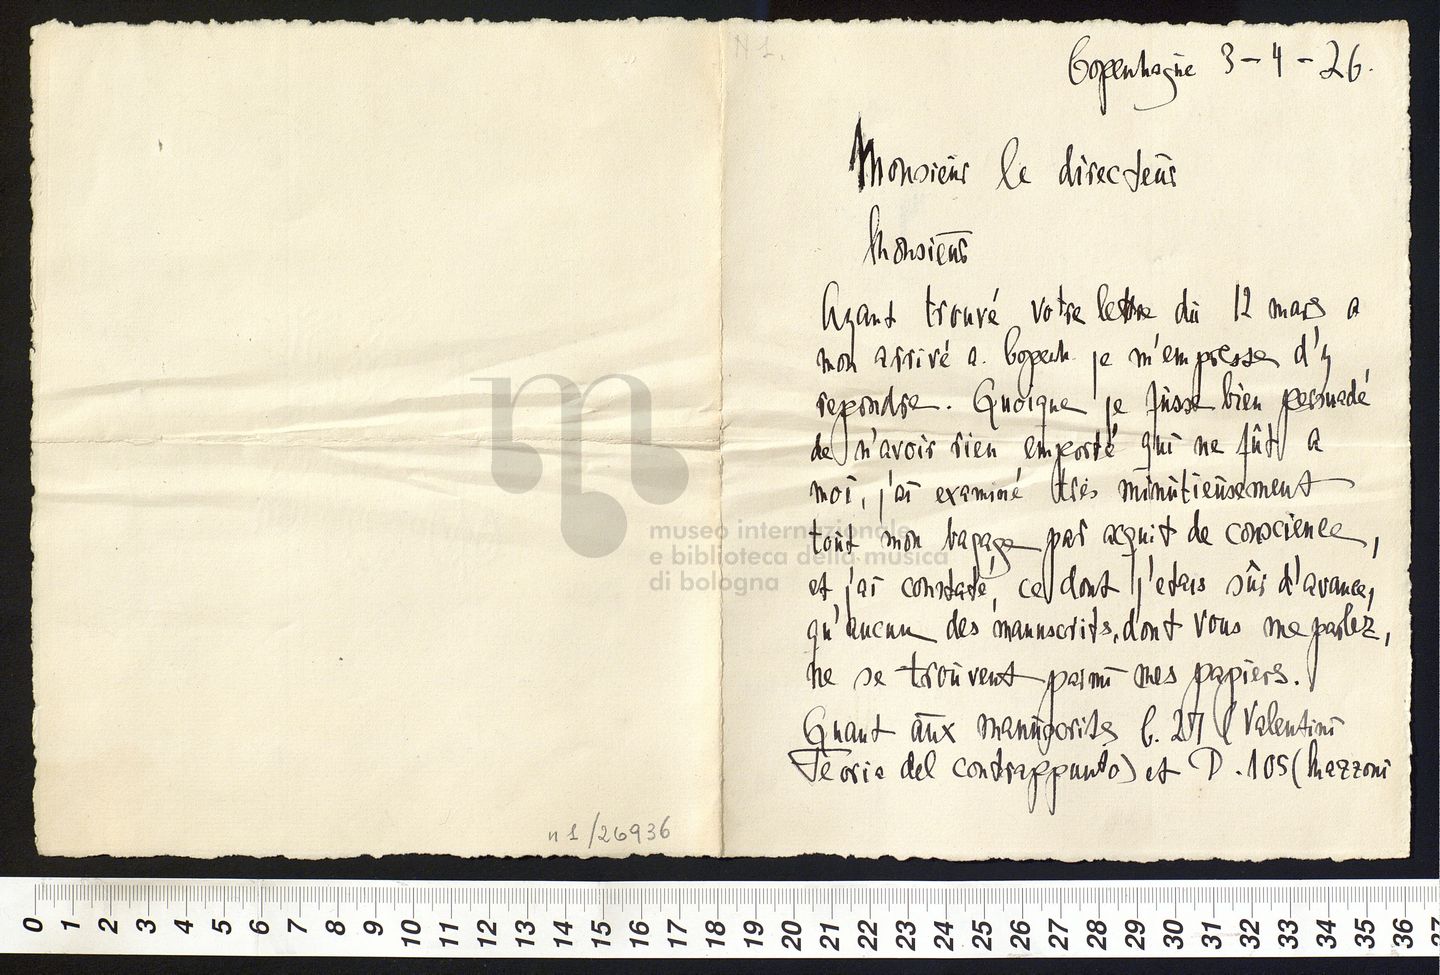 N 1.
Copenhague 3-4-26.
Monsieur le directeur
Monsieur
Ayant trouvé votre lettre du 12 mars a
mon arrivé a Copenh. je m'empresse d'y
repondre. Quoique je fusse bien persuadé
de n'avoir rien emporté qui ne fût a
moi, j'ai examiné très minutieusement
tout mon bagage par acquit de conscience,
et j'ai constaté, ce dont j'etais sûr d'avance,
qu'aucun des manuscrits, dont vous me parlez,
ne se trouvent parmi mes papiers.
Quant aux manuscrits C. 27 (Valentini
Teoria del contrappunto) et D. 105 (Mazzoni
n 1/26936
museo internazionale
e biblioteca della musica
di bologna
0 1 2 3 4 5 6 7 8 9 10 11 12 13 14 15 16 17 18 19 20 21 22 23 24 25 26 27 28 29 30 31 32 33 34 35 36 37